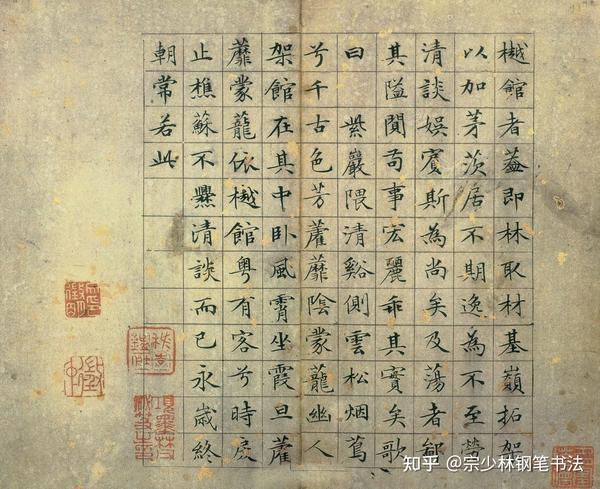 樾館者蓋即林取材基巔拓架
以加茅茨居不期逸為不至勞
清談娛賓斯為尚矣及蕩者鄙
其隘闃苟事宏麗乖其實矣歌
曰紫巖隈清谿側雲松烟蔦
兮千古色芳藿蘼陰蒙蘢幽人
架館在其中臥風霄坐霞旦藿
蘼蒙蘢依樾館粵有客兮時戾
止樵蘇不爨清談而已永歲終
朝常若此
知乎 @宗少林钢笔书法